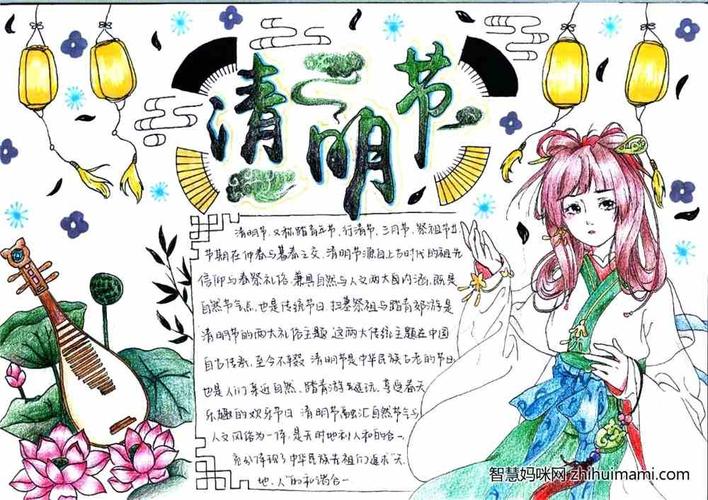 清明节
清明节，又称踏青节、行清节、三月节、祭祖节
节期在仲春与暮春之交。清明节源自上古时代的祖先
信仰与春祭礼俗，兼具自然与人文两大内涵，既是
自然节气点，也是传统节日，扫墓祭祖与踏青郊游是
清明节的两大礼俗主题，这两大传统主题在中国
自古传承，至今不辍。清明节是中华民族古老的节日
也是人们亲近自然、踏青游玩、享受春天
乐趣的欢乐节日。清明节融汇自然节气与
人文风俗为一体，是天时地利人和的合一
充分体现了中华民族先祖们追求"天
地、人"的和谐合一
智慧妈咪网 zhihuimami.com